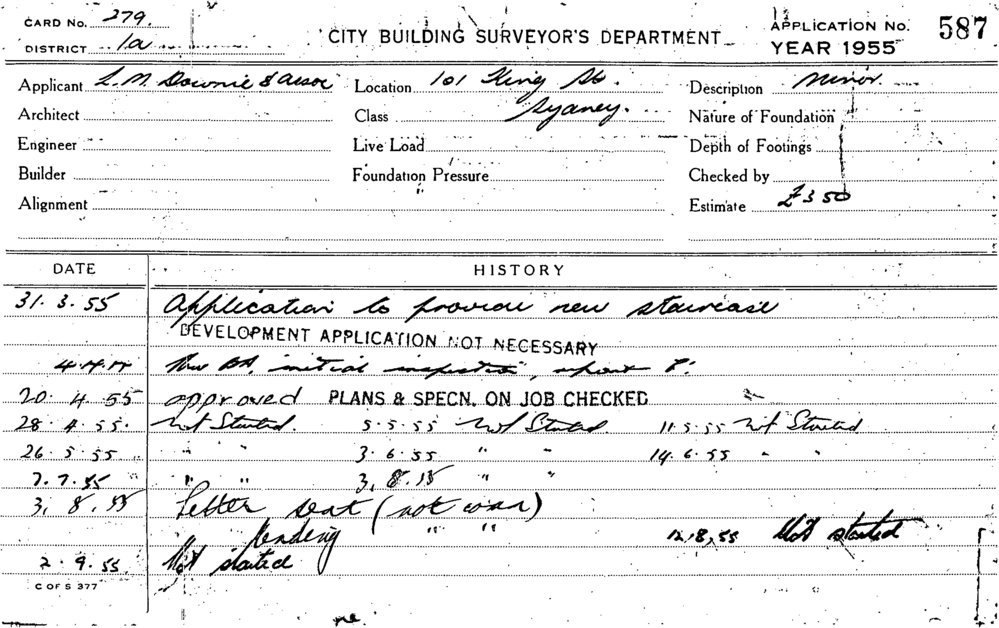 CARD No. 279.
DISTRICT 1a
CITY BUILDING SURVEYOR'S DEPARTMENT
APPLICATION No. 587
YEAR 1955
Applicant L. M. Downie & Assoc Location 101 King St. Description Minor.
Architect Class Sydney. Nature of Foundation
Engineer Live Load Depth of Footings
Builder Foundation Pressure Checked by
Alignment Estimate £350
DATE HISTORY
31.3.55 Application to provide new staircase
DEVELOPMENT APPLICATION NOT NECESSARY
initial inspection, report
20.4.55 approved PLANS & SPECN. ON JOB CHECKED
28.4.55. Not Started. 5.5.55 Not Started. 11.5.55 Not Started
26.5.55 " " 3.6.55 " " 14.6.55 " "
7.7.55 " " 3.8.55 " "
3.8.55 Letter sent (not
" " 12.8.55 Not started
2.9.55 Not started
C OF S 377